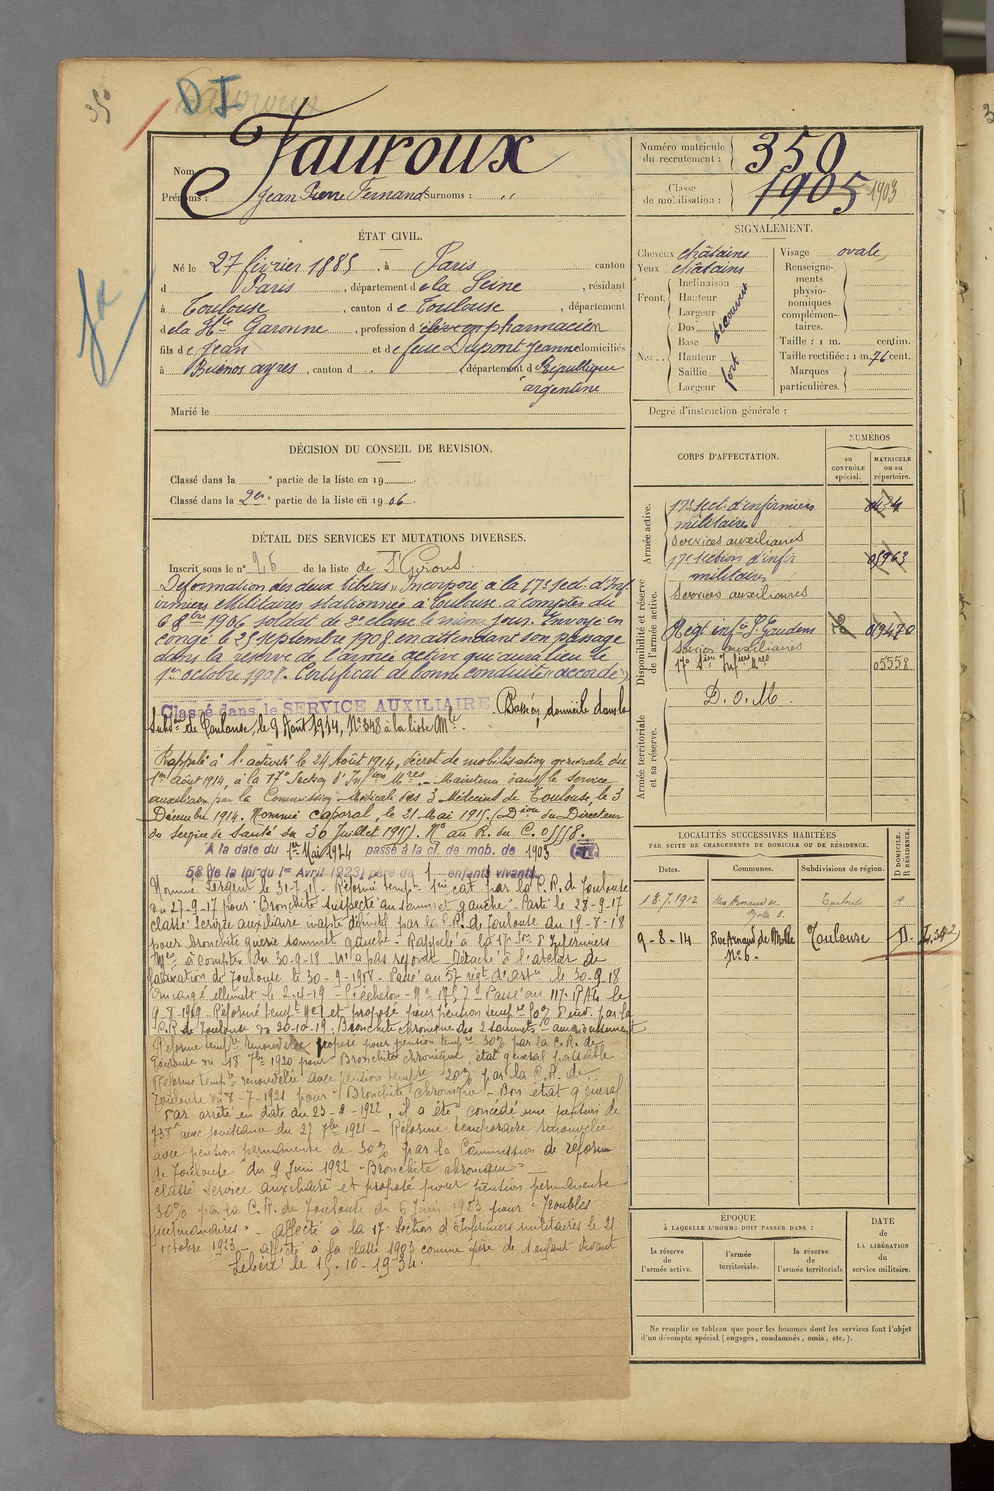 35°
D I
Nom Fauroux
Prénoms : Jean Pierre Fernand Surnoms : "
Numéro matricule du recrutement : 350
Classe de mobilisation : 1905 1903
ÉTAT CIVIL.
Né le 27 février 1885, à Paris canton
d Paris, département de la Seine, résidant
à Toulouse, canton de Toulouse, département
de la Hte Garonne, profession d'élève en pharmacien
fils de Jean et de feue Dupont Jeanne domiciliés
à Buenos ayres, canton d "., département d République
argentine
Marié le
DÉCISION DU CONSEIL DE REVISION.
Classé dans la ° partie de la liste en 19
Classé dans la 2e ° partie de la liste en 1906
DÉTAIL DES SERVICES ET MUTATIONS DIVERSES.
Inscrit sous le n° 26 de la liste de St Girons
Déformation des deux tibias " Incorporé à la 17e Sect. d'Inf
irmiers Militaires stationnée à Toulouse à compter du
6 8bre 1906 soldat de 2e classe le même jour. Envoyé en
congé le 25 septembre 1908 en attendant son passage
dans la réserve de l'armée active qui aura lieu le
1er octobre 1908. Certificat de bonne conduite "accordé"
Classé dans le SERVICE AUXILIAIRE Passé en domicile dans la
Subdon de Toulouse, le 9 Août 1914, N° 348 à la liste Mle.
Rappelé à l'activité le 24 Août 1914, décret de mobilisation générale du
1er août 1914, à la 17e Section d'Infiers Mres. - Maintenu dans le Service
auxiliaire par la Commission Médicale des 3 Médecins de Toulouse, le 3
Décembre 1914. Nommé caporal, le 21 Mai 1915. (Don du Directeur
du Service de Santé du 30 Juillet 1915). N° au R. du C. 05558.
A la date du 1er Mai 1924 passé à la cl. de mob. de 1903
58 de la loi du 1er Avril 1923) père de 1 enfants vivants.
Nommé Sergent le 31-7-1 - Réformé tempre 1ere cat. par la C.R. de Toulouse
du 27-9-17 pour "Bronchite suspecte au sommet gauche" - Parti le 28-9-17
classé service auxiliaire inapte définitif par la C.R. de Toulouse du 19-8-18
pour bronchite guérie sommet gauche - Rappelé à la 17e Son d'Infirmiers
Mres à compter du 30-9-18 - N'a pas rejoint - Détaché à l'atelier de
fabrication de Toulouse le 30-9-1918 - Passé au 57e régt d'Artie le 30-9-18
le 2-4-19 - échelon - N° 1757 - Passé au 117e R.A.L. le
9-8-1919 - Réformé tempre N° 1 et proposé pour pension tempre par la
C.R. de Toulouse du 20-10-19 : Bronchite chronique des 2 sommets - amaigrissement
Réforme tempre renouvelée proposé pour pension tempre 30% par la C.R. de
Toulouse du 18 7bre 1920 pour "Bronchite chronique, état général passable
Réforme tempre renouvelée avec pension tempre 20% par la C.R. de
Toulouse du 8-7-1921 pour "Bronchite chronique - Bon état général
Par arrêté en date du 23-2-1922, il a été concédé une pension de
avec jouissance du 27 7bre 1921 - Réforme temporaire renouvelée
avec pension permanente de 30% par la Commission de réforme
de Toulouse du 9 Juin 1922 "Bronchite chronique" -
classé service auxiliaire et proposé pour pension permanente
30% par la C.R. de Toulouse du 6 Juin 1923 pour "Troubles
pulmonaires" - affecté à la 17e Section d'Infirmiers militaires le 21
octobre 1923 - affecté à la classe 1903 comme père de 1 enfant vivant
Libéré le 15-10-1934.
SIGNALEMENT.
Cheveux châtains
Yeux châtains
Front. Inclinaison
Hauteur
Largeur
découvert
Nez .. Dos
Base
Hauteur
Saillie
Largeur
fort
Visage ovale
Renseignements physionomiques complémentaires.
Taille : 1 m. centim.
Taille rectifiée : 1 m. 76 cent.
Marques particulières.
Degré d'instruction générale :
CORPS D'AFFECTATION.
NUMÉROS
au CONTRÔLE spécial.
MATRICULE ou au répertoire.
Armée active.
17e Sect. d'infirmiers
militaires
Services auxiliaires
Disponibilité et réserve de l'armée active.
17e section d'infir 05963
militaires
Services auxiliaires
Regt infie St Gaudens 019470
Services auxiliaires
17e Son Infiers Mres 05558
Armée territoriale et sa réserve.
D. o. M
LOCALITÉS SUCCESSIVES HABITÉES
PAR SUITE DE CHANGEMENTS DE DOMICILE OU DE RÉSIDENCE.
Dates. Communes. Subdivisions de région. D DOMICILE. R RÉSIDENCE.
18.7.1912 Rue Arnaud de Molle 8. Toulouse R
9-8-14 Rue Arnaud de Molle N° 6. Toulouse D.
ÉPOQUE
À LAQUELLE L'HOMME DOIT PASSER DANS :
la réserve de l'armée active.
l'armée territoriale.
la réserve de l'armée territoriale
DATE de LA LIBÉRATION du service militaire.
Ne remplir ce tableau que pour les hommes dont les services font l'objet
d'un décompte spécial (engagés, condamnés, omis, etc.).